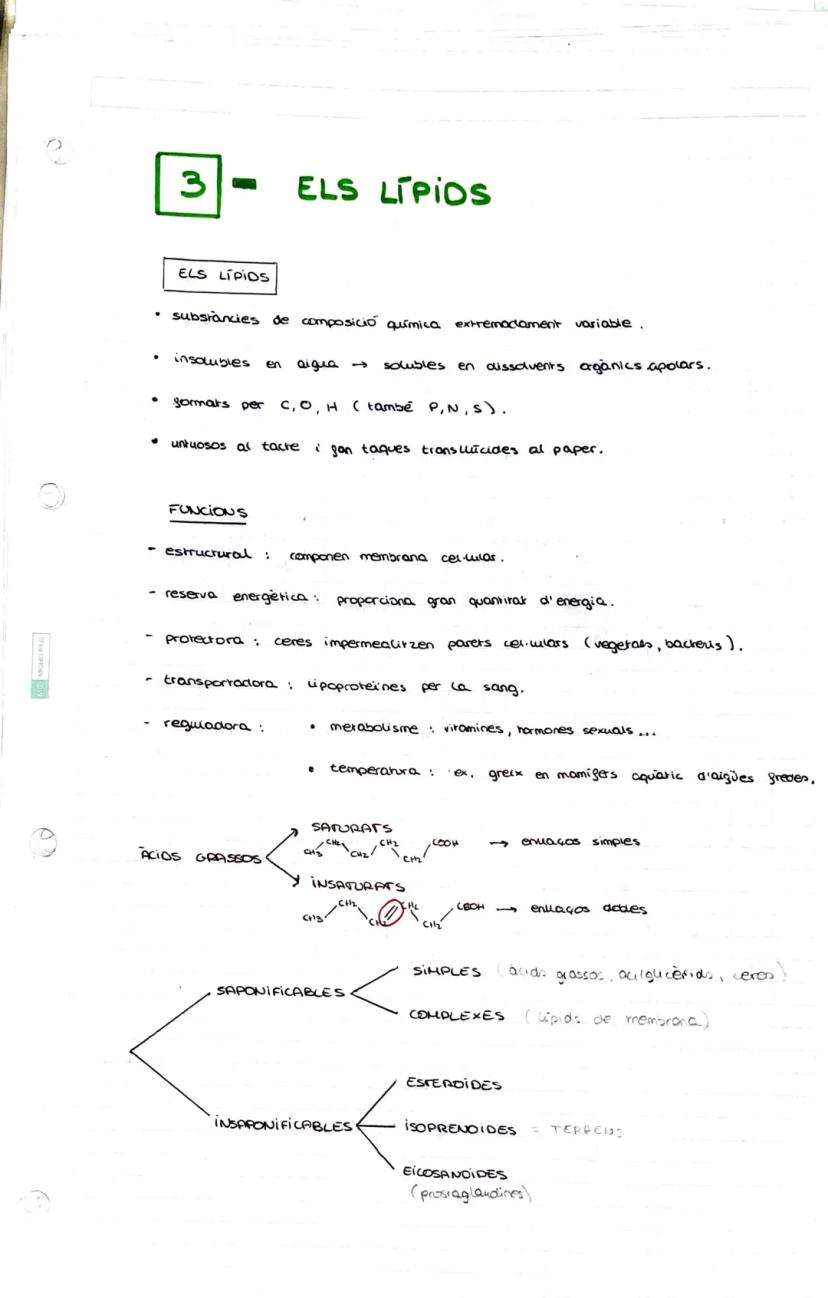 3 - ELS LÍPIDS
ELS LÍPIDS
• substàncies de composició química extremadament variable.
• insolubles en aigua → solubles en dissolvents orgànics apolars.
• formats per C, O, H (també P, N, S).
• untuosos al tacte i fan taques translúcides al paper.
FUNCIONS
- estructural : componen membrana cel·lular.
- reserva energètica : proporciona gran quantitat d'energia.
- protectora : ceres impermealitzen parets cel·lulars (vegetals, bacteris).
- transportadora : lipoproteïnes per la sang.
- reguladora : • metabolisme : vitamines, hormones sexuals ...
• temperatura : ex. greix en mamífers aquàtic d'aigües fredes.
ÀCIDS GRASSOS
SATURATS
CH3 CH2 CH2 CH2 CH2 COOH → enllaços simples
INSATURATS
CH3 CH2 CH2 CH2 COOH → enllaços dobles
SAPONIFICABLES
SIMPLES (àcids grassos, acilglicèrids, ceres)
COMPLEXES (lípids de membrana)
INSAPONIFICABLES
ESTEROIDES
ISOPRENOIDES = TERPENS
EICOSANOIDES
(prostaglandines)